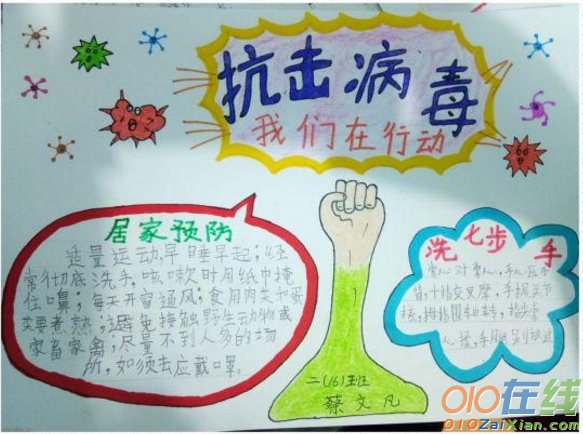 抗击病毒
我们在行动
居家预防
适量运动,早睡早起;经
常彻底洗手,咳嗽时用纸巾掩
住口鼻;每天开窗通风;食用肉类和蛋
类要煮熟;避免接触野生动物或
家畜家禽;尽量不到人多的场
所,如须去应戴口罩。
洗七步手
掌心对掌心,手心压手
背,十指交叉摩,手握关节
搓,拇指围轴转,指尖
二(6)班
蔡文凡
010在线
010ZaiXian.com